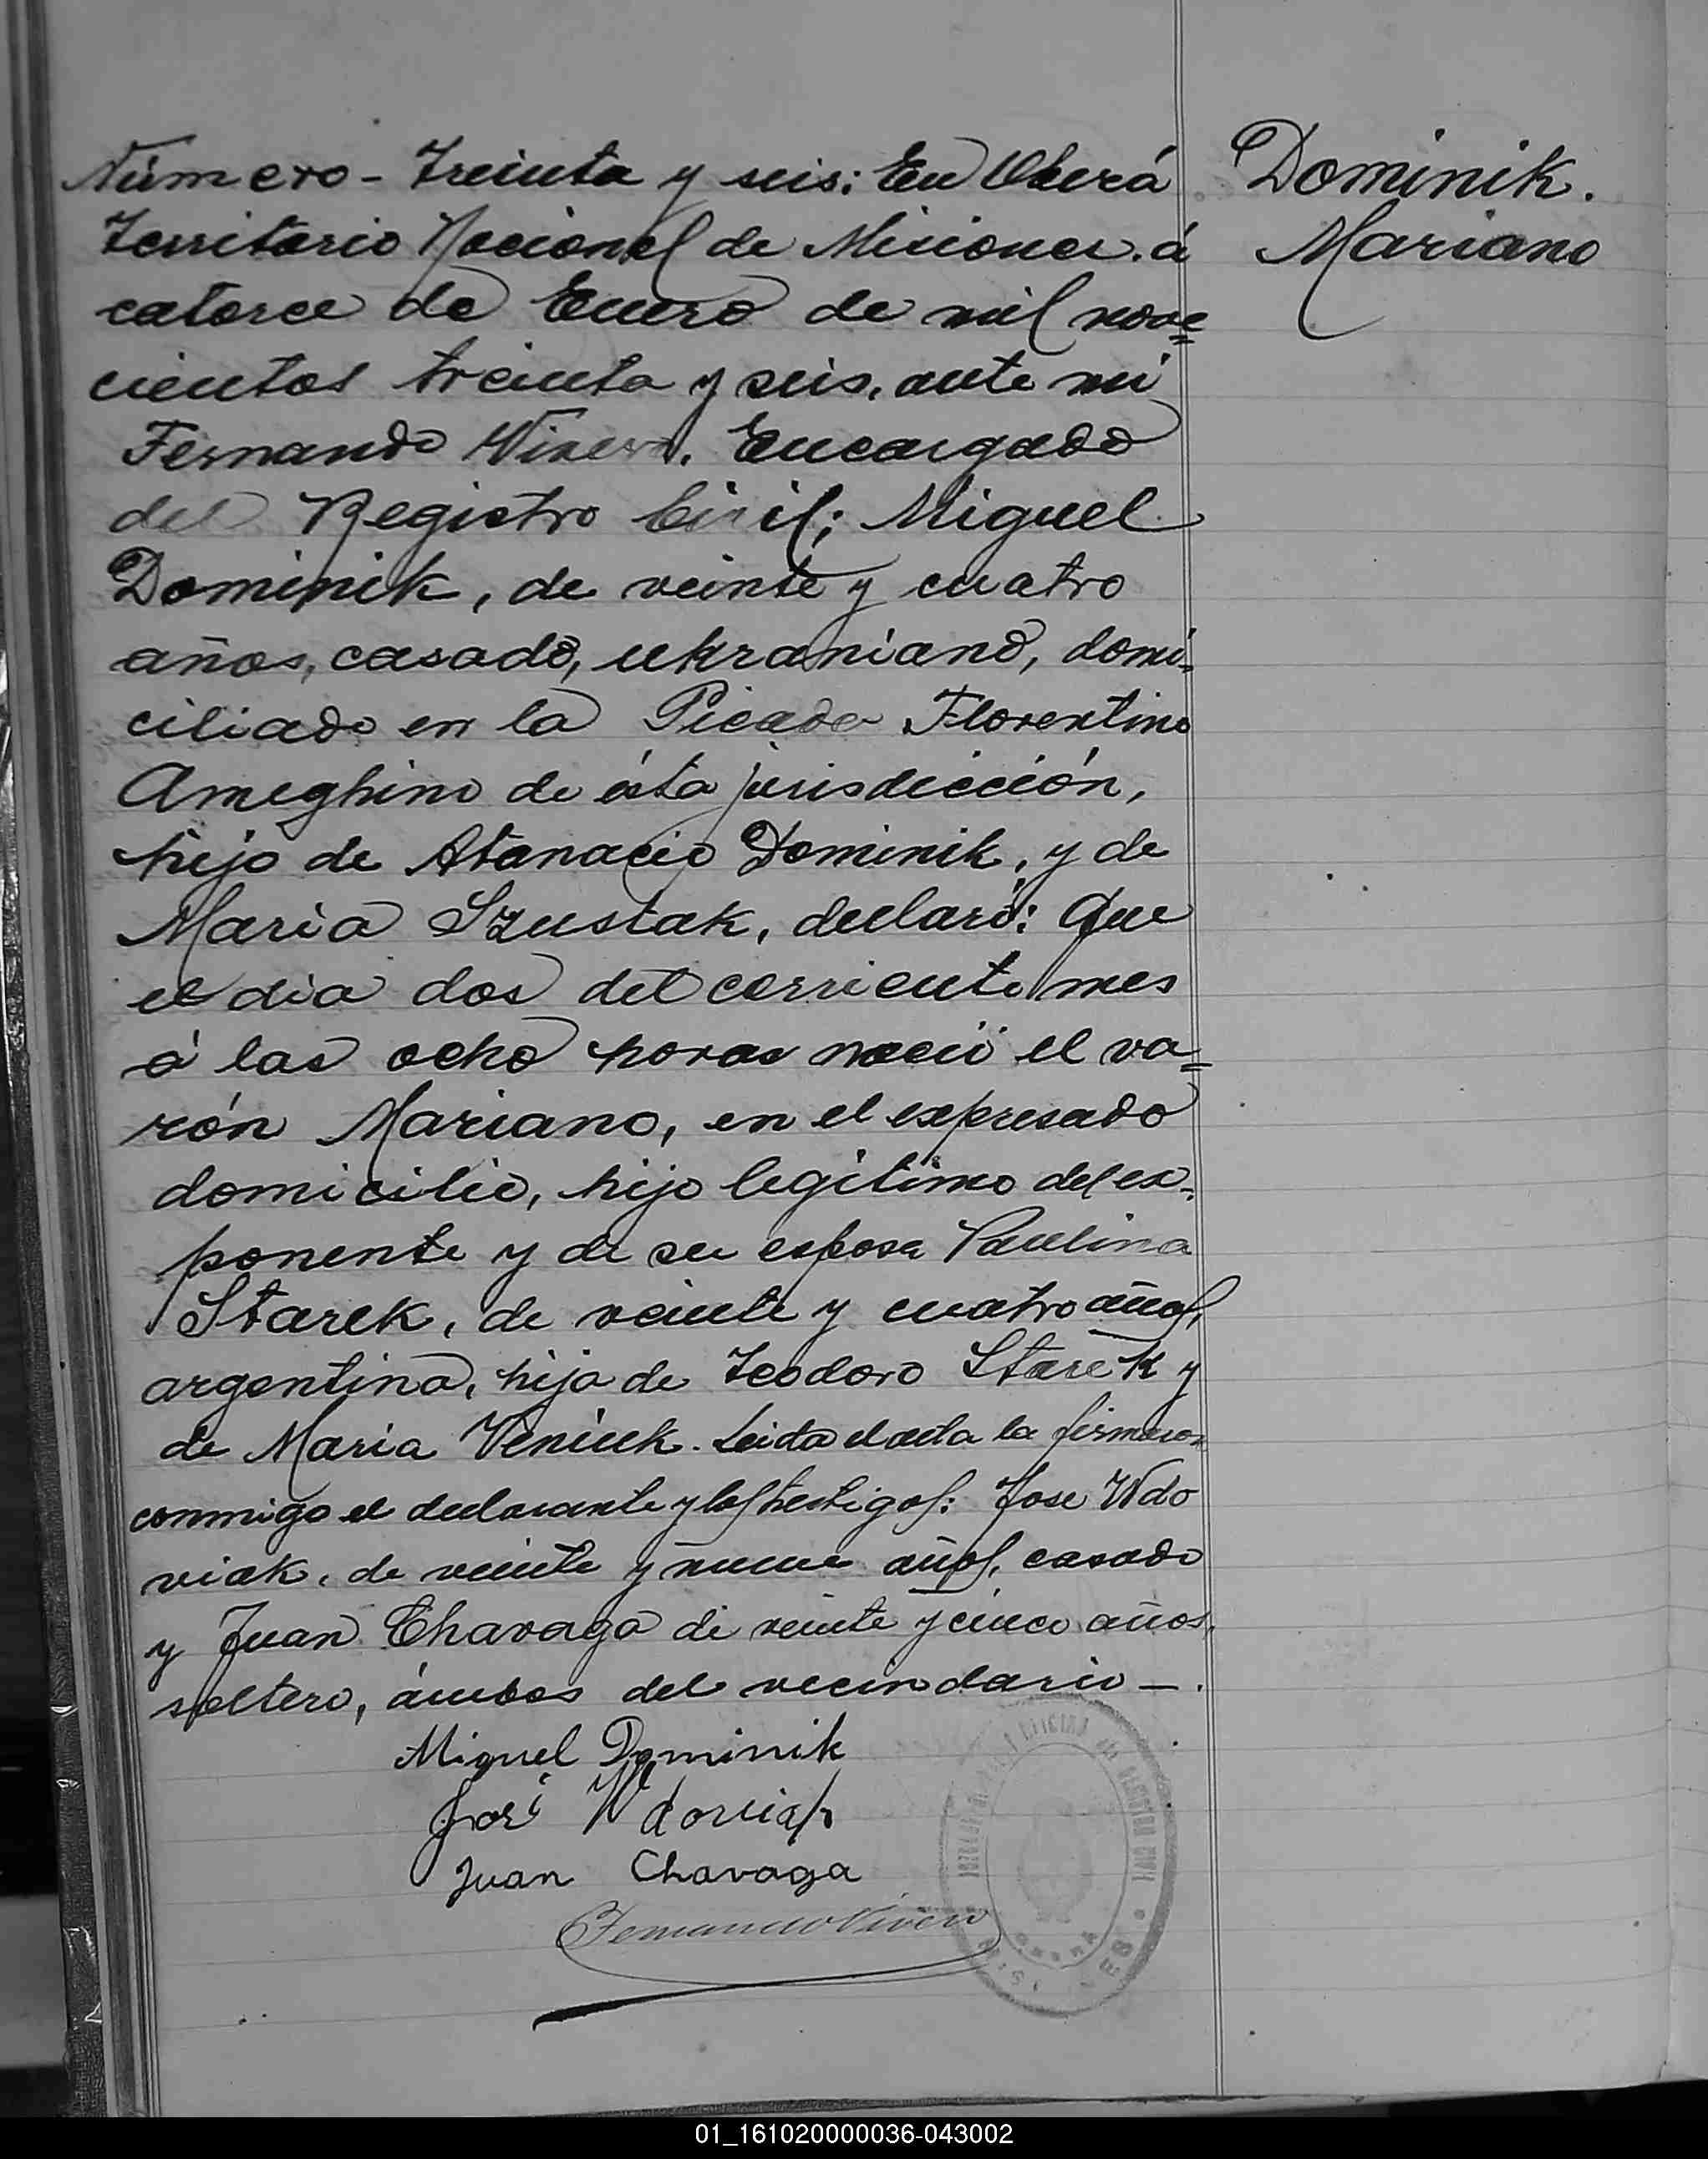 Número - Treinta y seis: En Oberá
Territorio Nacional de Misiones. á
catorce de Enero de mil nove=
cientos treinta y seis, ante mi
Fernando Vivero. Encargado
del Registro Civil; Miguel
Dominik, de veinte y cuatro
años, casado, ukraniano, domi-
ciliado en la Picada Florentino
Ameghino de ésta jurisdicción,
hijo de Atanacio Dominik, y de
Maria Szustak, declaró: Que
el dia dos del corriente mes
á las ocho horas nació el va=
rón Mariano, en el expresado
domicilio, hijo legítimo del ex-
ponente y de su esposa Paulina
Starek, de veinte y cuatro años,
argentina, hija de Teodoro Starek y
de Maria Veniuk. Leida el acta la firmaron
conmigo el declarante y los testigos: Jose Wdo
viak, de veinte y nueve años, casado
y Juan Chavaga de veinte y cinco años,
soltero, ámbos del vecindario -.
Miguel Dominik
José Wdoviak
Juan Chavaga
Fernando Vivero
Dominik.
Mariano
OFICINA DEL REGISTRO CIVIL
01_161020000036-043002